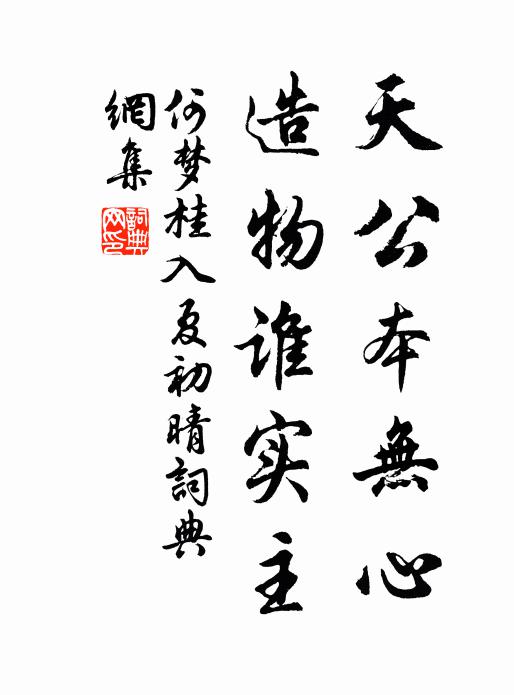 天公本無心
造物谁实主
何梦桂入夏初晴詞典
網集
詞典
网印